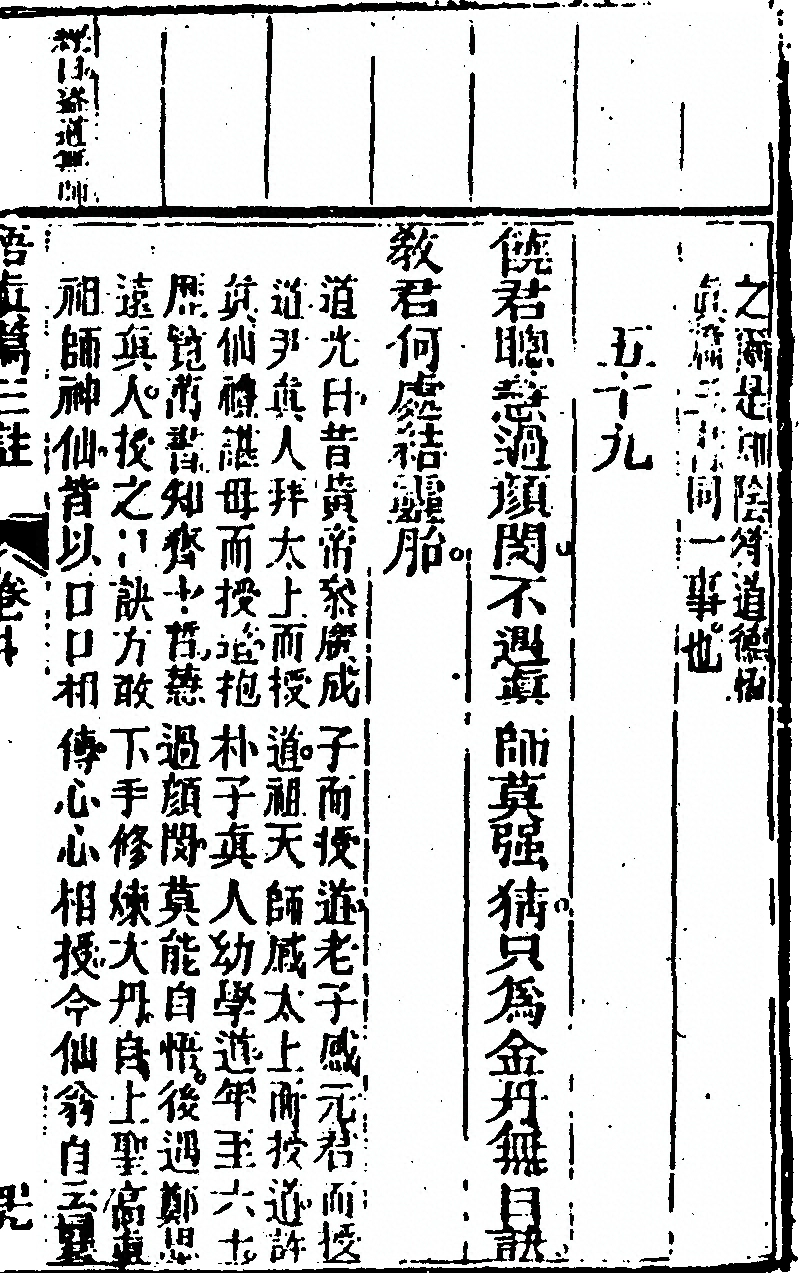 之爾是知陰符道德悟
真篇三書同一事也
五十九
饒君聰慧過顔閔不遇眞師莫强猜只爲金丹無口訣
教君何處結靈胎
道光曰昔黃帝參廣成子而授道老子感元君而授
道尹眞人拜太上而授道祖天師感太上而授道許
眞仙禮諶母而授道抱朴子眞人幼學道年至六十
歷覽萬書知齊十哲慧過顔閔莫能自悟後遇鄭思
遠眞人授之口訣方敢下手修煉大丹自上聖高眞
祖師神仙皆以口口相傳心心相授今仙翁自云
經曰盜道無師
悟真篇三註 卷